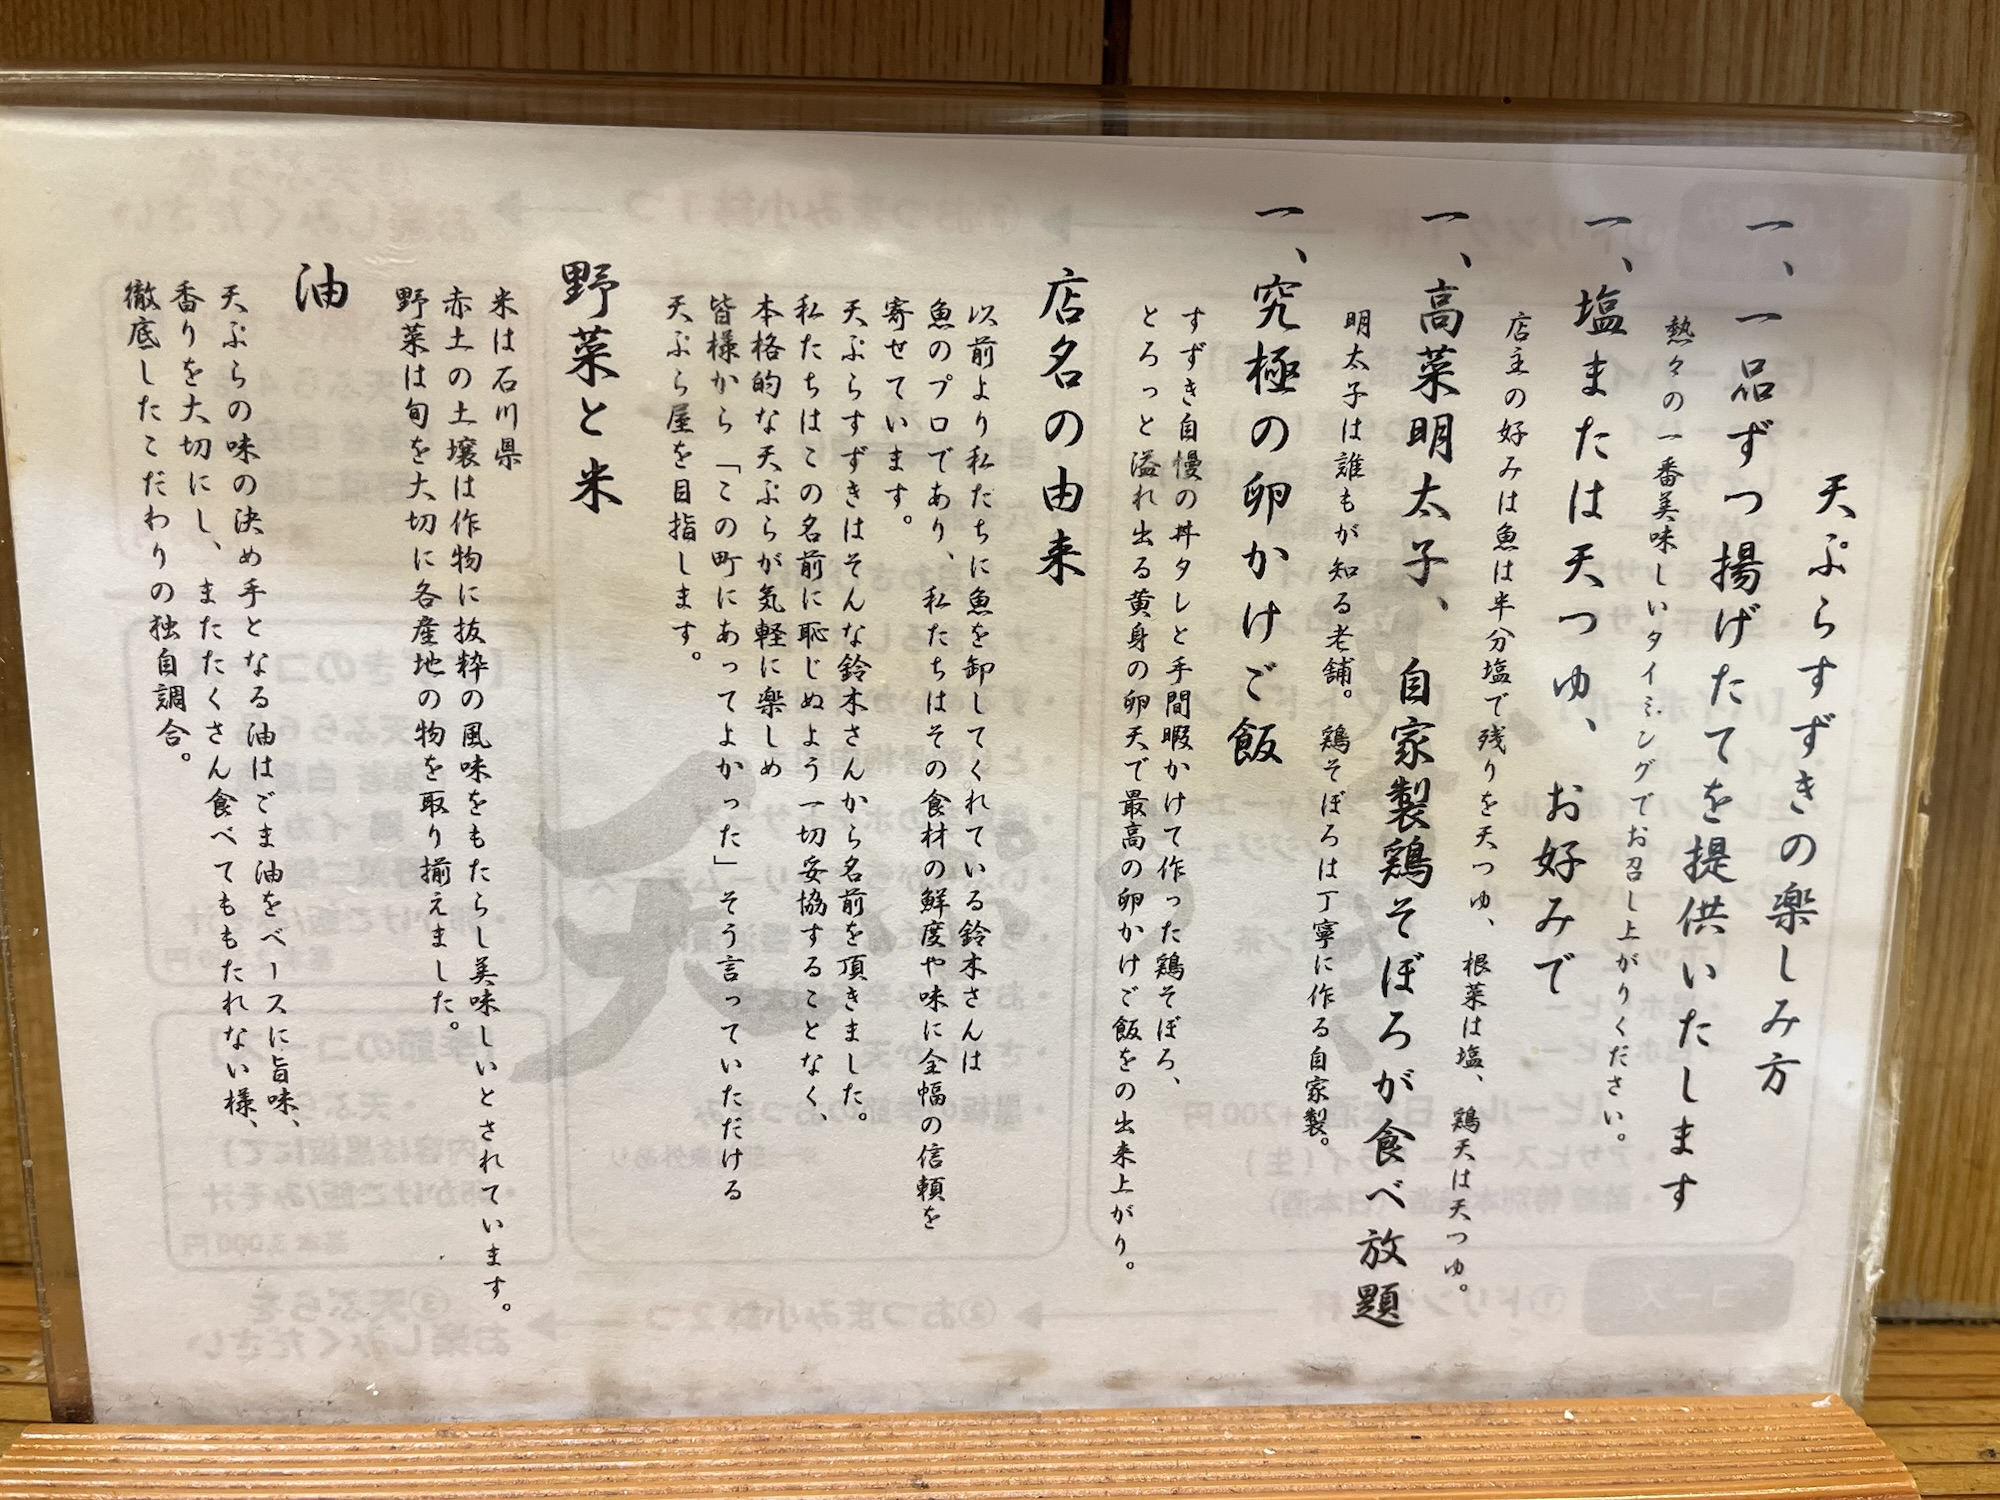 天ぷらすずきの楽しみ方
一、一品ずつ揚げたてを提供いたします
熱々の一番美味しいタイミングでお召し上がりください。
一、塩または天つゆ、お好みで
店主の好みは魚は半分塩で残りを天つゆ、根菜は塩、鶏天は天つゆ。
一、高菜明太子、自家製鶏そぼろが食べ放題
明太子は誰もが知る老舗。鶏そぼろは丁寧に作る自家製。
一、究極の卵かけご飯
すずき自慢の丼タレと手間暇かけて作った鶏そぼろ、
とろっと溢れ出る黄身の卵天で最高の卵かけご飯をの出来上がり。
店名の由来
以前より私たちに魚を卸してくれている鈴木さんは
魚のプロであり、私たちはその食材の鮮度や味に全幅の信頼を
寄せています。
天ぷらすずきはそんな鈴木さんから名前を頂きました。
私たちはこの名前に恥じぬよう一切妥協することなく、
本格的な天ぷらが気軽に楽しめ
皆様から「この町にあってよかった」そう言っていただける
天ぷら屋を目指します。
野菜と米
米は石川県
赤土の土壌は作物に抜粋の風味をもたらし美味しいとされています。
野菜は旬を大切に各産地の物を取り揃えました。
油
天ぷらの味の決め手となる油はごま油をベースに旨味、
香りを大切にし、またたくさん食べてももたれない様、
徹底したこだわりの独自調合。